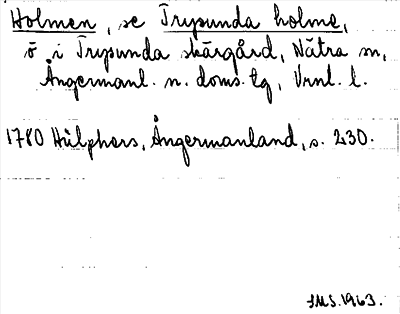 Holmen, se Trysunda holme,
ö i Trysunda skärgård, Nätra sn,
Ångermanl. n. doms. tg, Vrnl. l.
1780 Hülphers, Ångermanland, s. 230.
SMS. 1963.